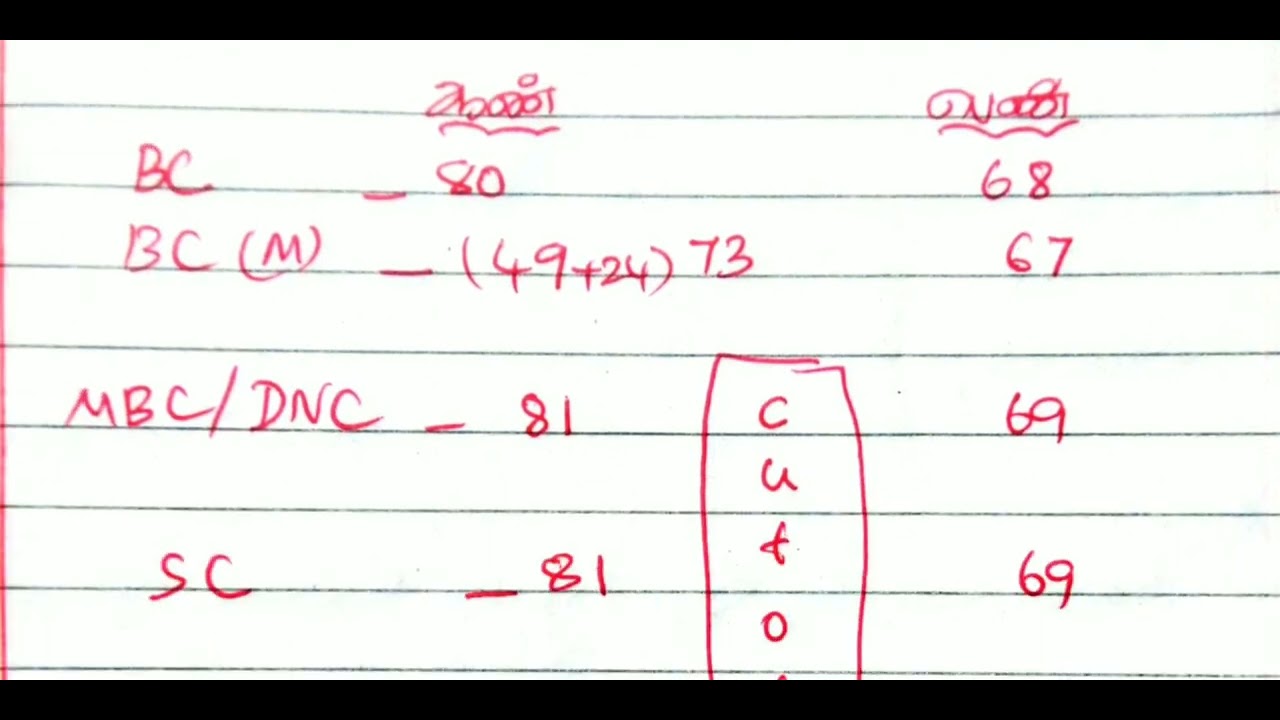 ஆண் பெண்
BC - 80 68
BC (M) - (49+24) 73 67
MBC/DNC - 81 C 69
u
t
SC - 81 69
o